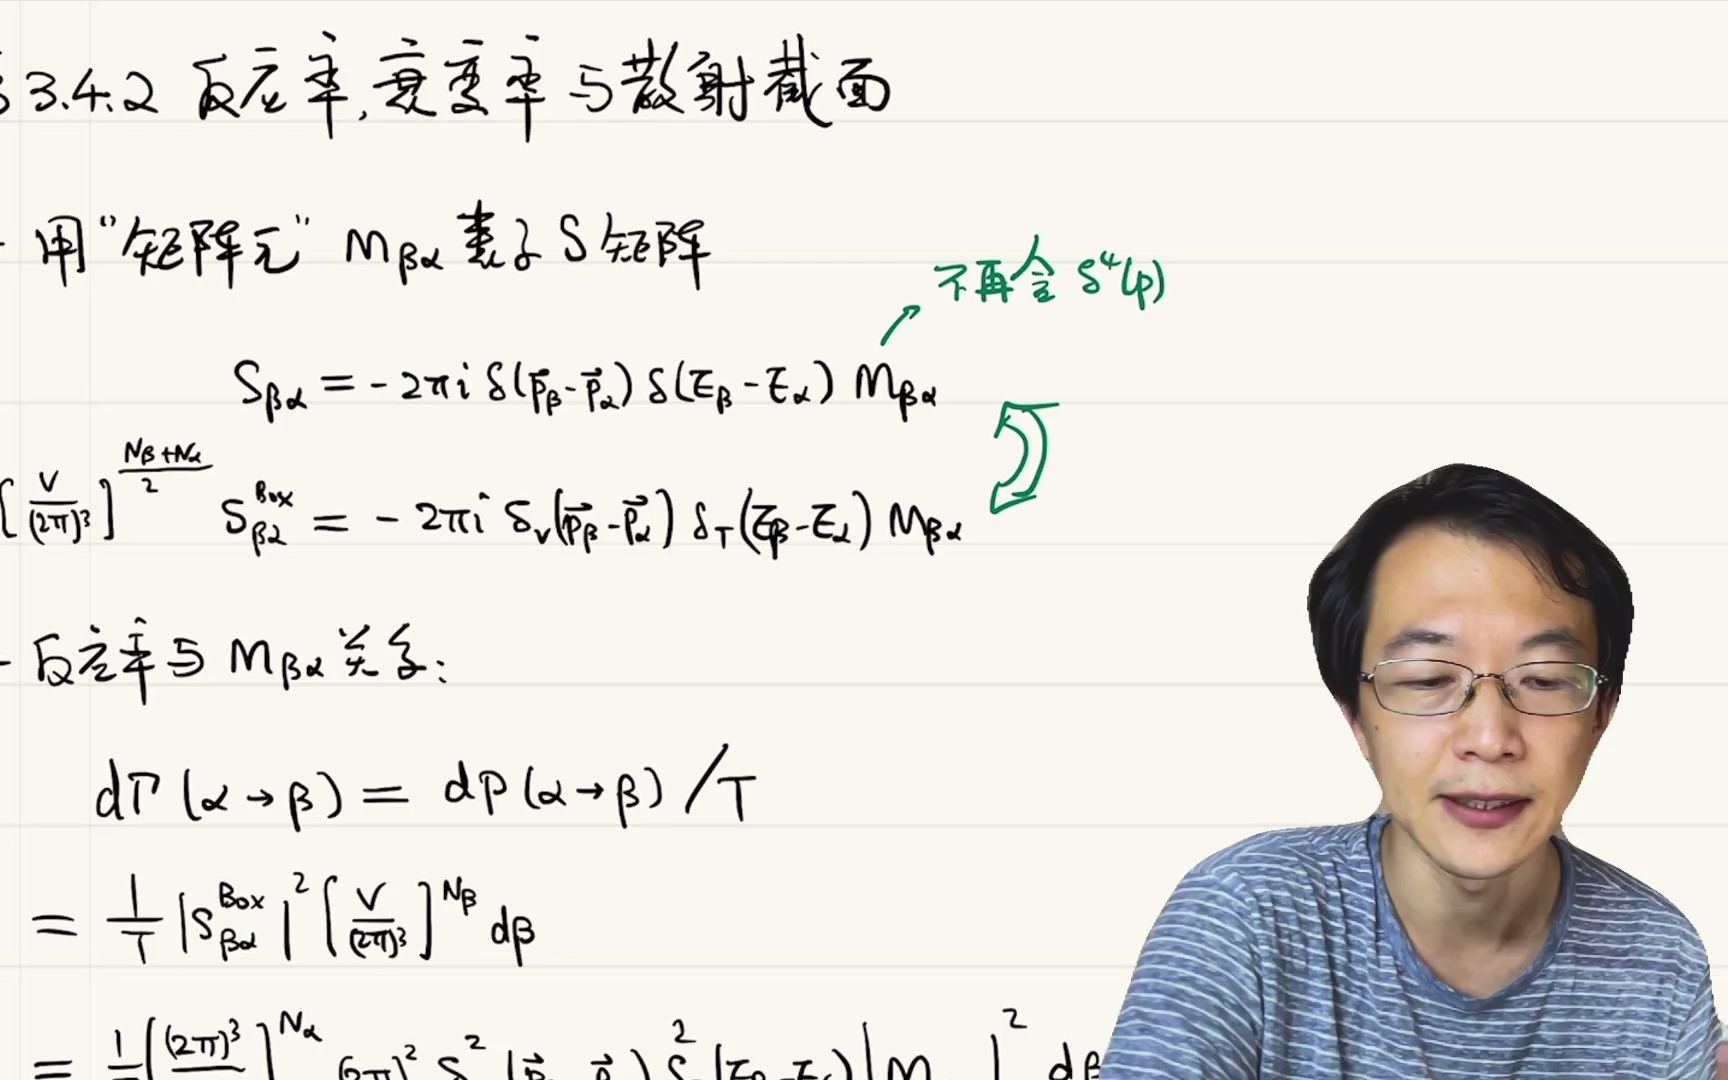 §3.4.2 反应率,衰变率与散射截面
- 用"矩阵元" Mβα 表示 S矩阵
不再含 δ⁴(p)
Sβα = -2πi δ(p⃗β-p⃗α) δ(Eβ-Eα) Mβα
[V/(2π)³]^((Nβ+Nα)/2) Sβα^Box = -2πi δV(p⃗β-p⃗α) δT(Eβ-Eα) Mβα
- 反应率与 Mβα 关系:
dΓ(α→β) = dP(α→β)/T
= 1/T |Sβα^Box|² [V/(2π)³]^Nβ dβ